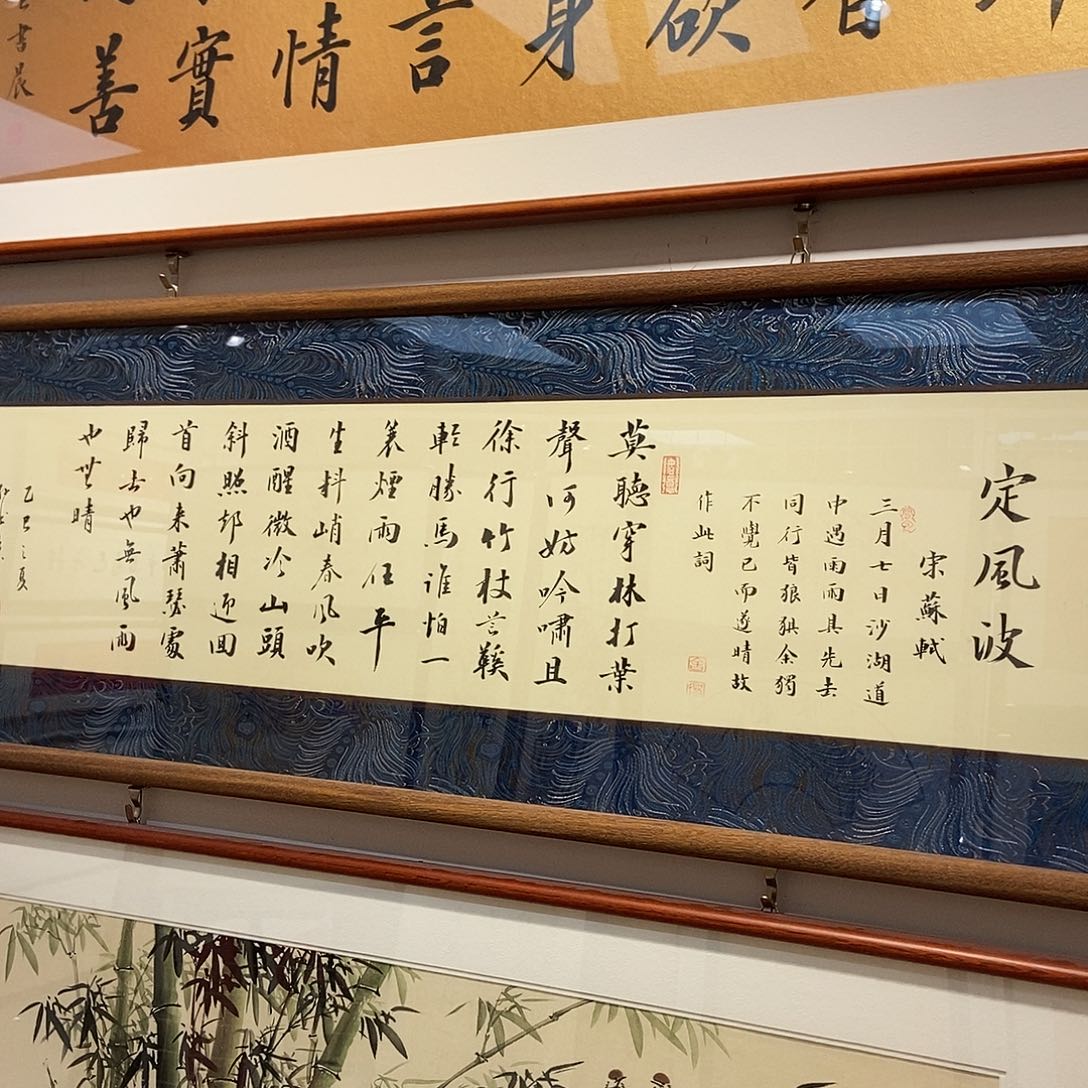 欲
身
言
情
實
善
書晨
定風波
宋蘇軾
三月七日沙湖道
中遇雨雨具先去
同行皆狼狽余獨
不覺已而遂晴故
作此詞
莫聽穿林打葉
聲何妨吟嘯且
徐行竹杖芒鞵
輕勝馬誰怕一
蓑煙雨任平
生料峭春風吹
酒醒微冷山頭
斜照却相迎回
首向来蕭瑟處
歸去也無風雨
也無晴
乙巳之夏